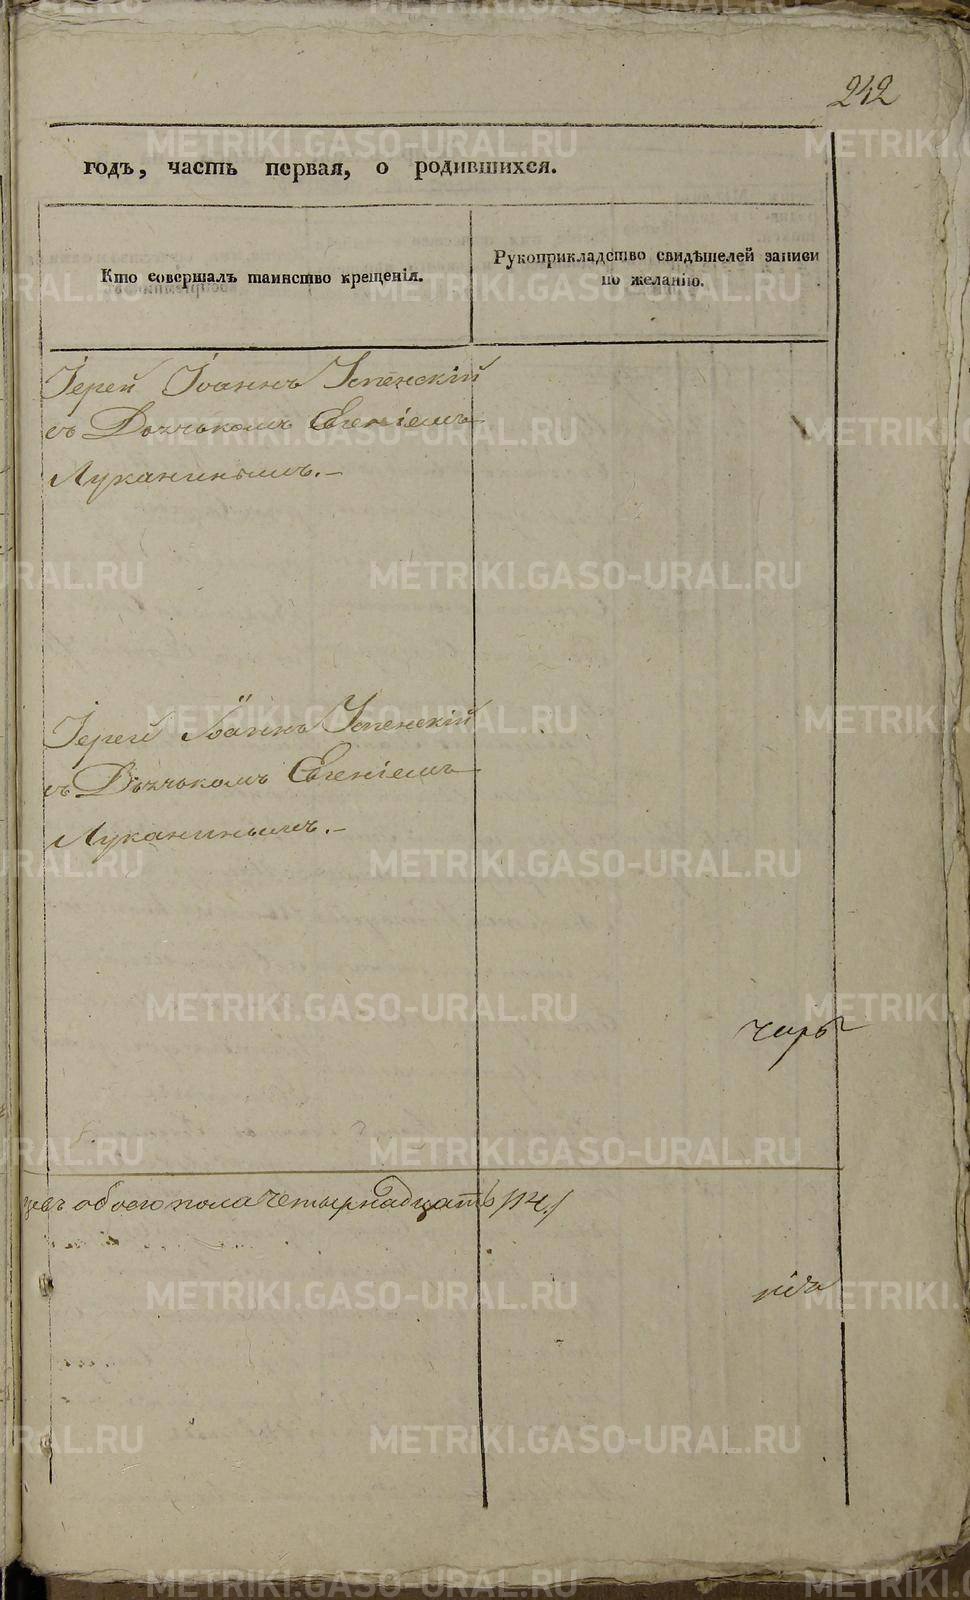 242
годъ, часть первая, о родившихся.
Кто совершалъ таинство крещенія.
Рукоприкладство свидѣтелей записи
по желанію.
Іерей Іоаннъ Успенскій
съ Дьячькомъ Евгеніемъ
Луканинымъ.–
Іерей Іоаннъ Успенскій
съ Дьячькомъ Евгеніемъ
Луканинымъ.–
обоего пола четырнадцать /14./
METRIKI.GASO-URAL.RU